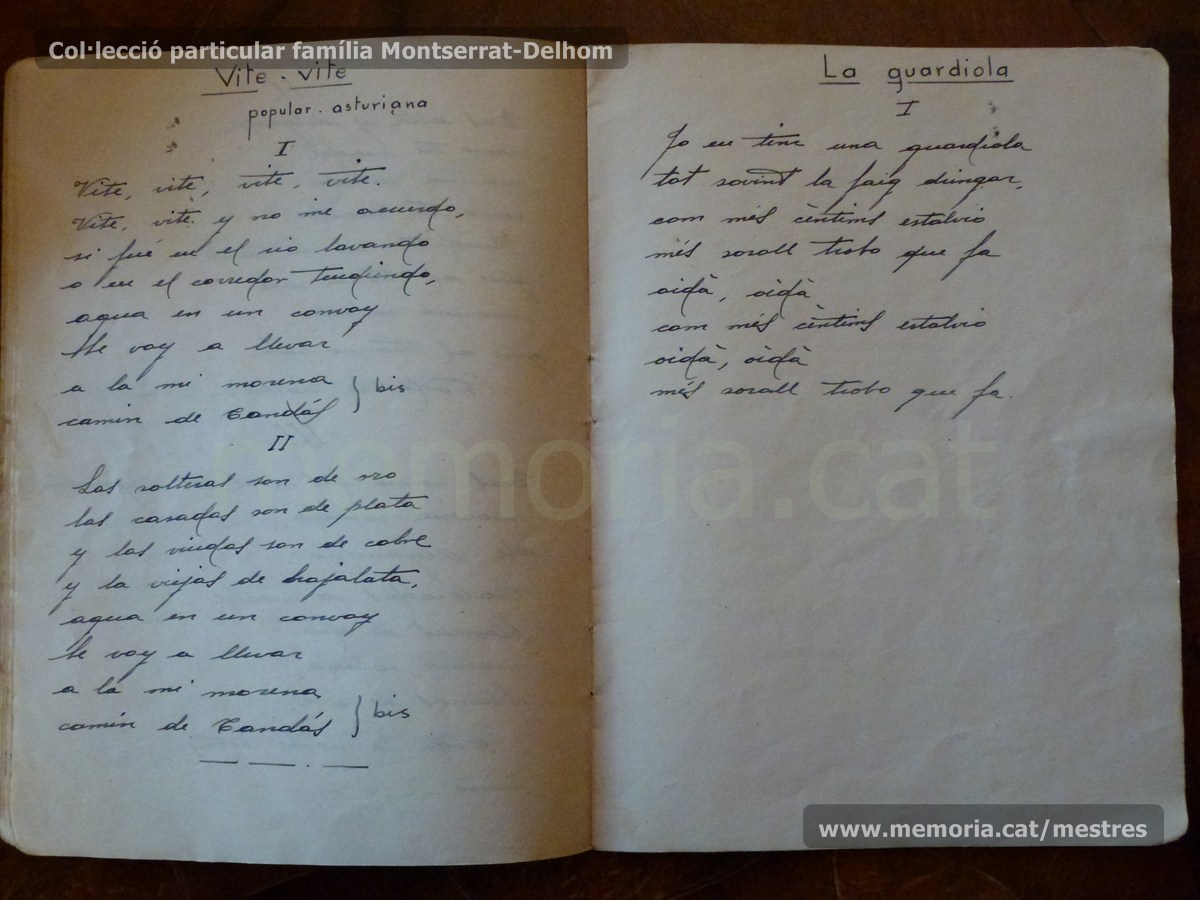 Col·lecció particular família Montserrat-Delhom
Vite - vite
popular - asturiana
I
Vite, vite, vite, vite.
Vite, vite y no me acuerdo,
si fué en el rio lavando
o en el corredor tendiendo,
agua en un convoy
te voy a llevar
a la mi morena
camin de Candás } bis
II
Las solteras son de oro
las casadas son de plata
y las viudas son de cobre
y la viejas de hojalata,
agua en un convoy
te voy a llevar
a la mi morena
camin de Candás } bis
La guardiola
I
Jo en tinc una guardiola
tot sovint la faig dringar,
com més cèntims estalvio
més soroll trobo que fa
oidà, oidà
com més cèntims estalvio
oidà, oidà
més soroll trobo que fa.
memoria.cat
www.memoria.cat/mestres